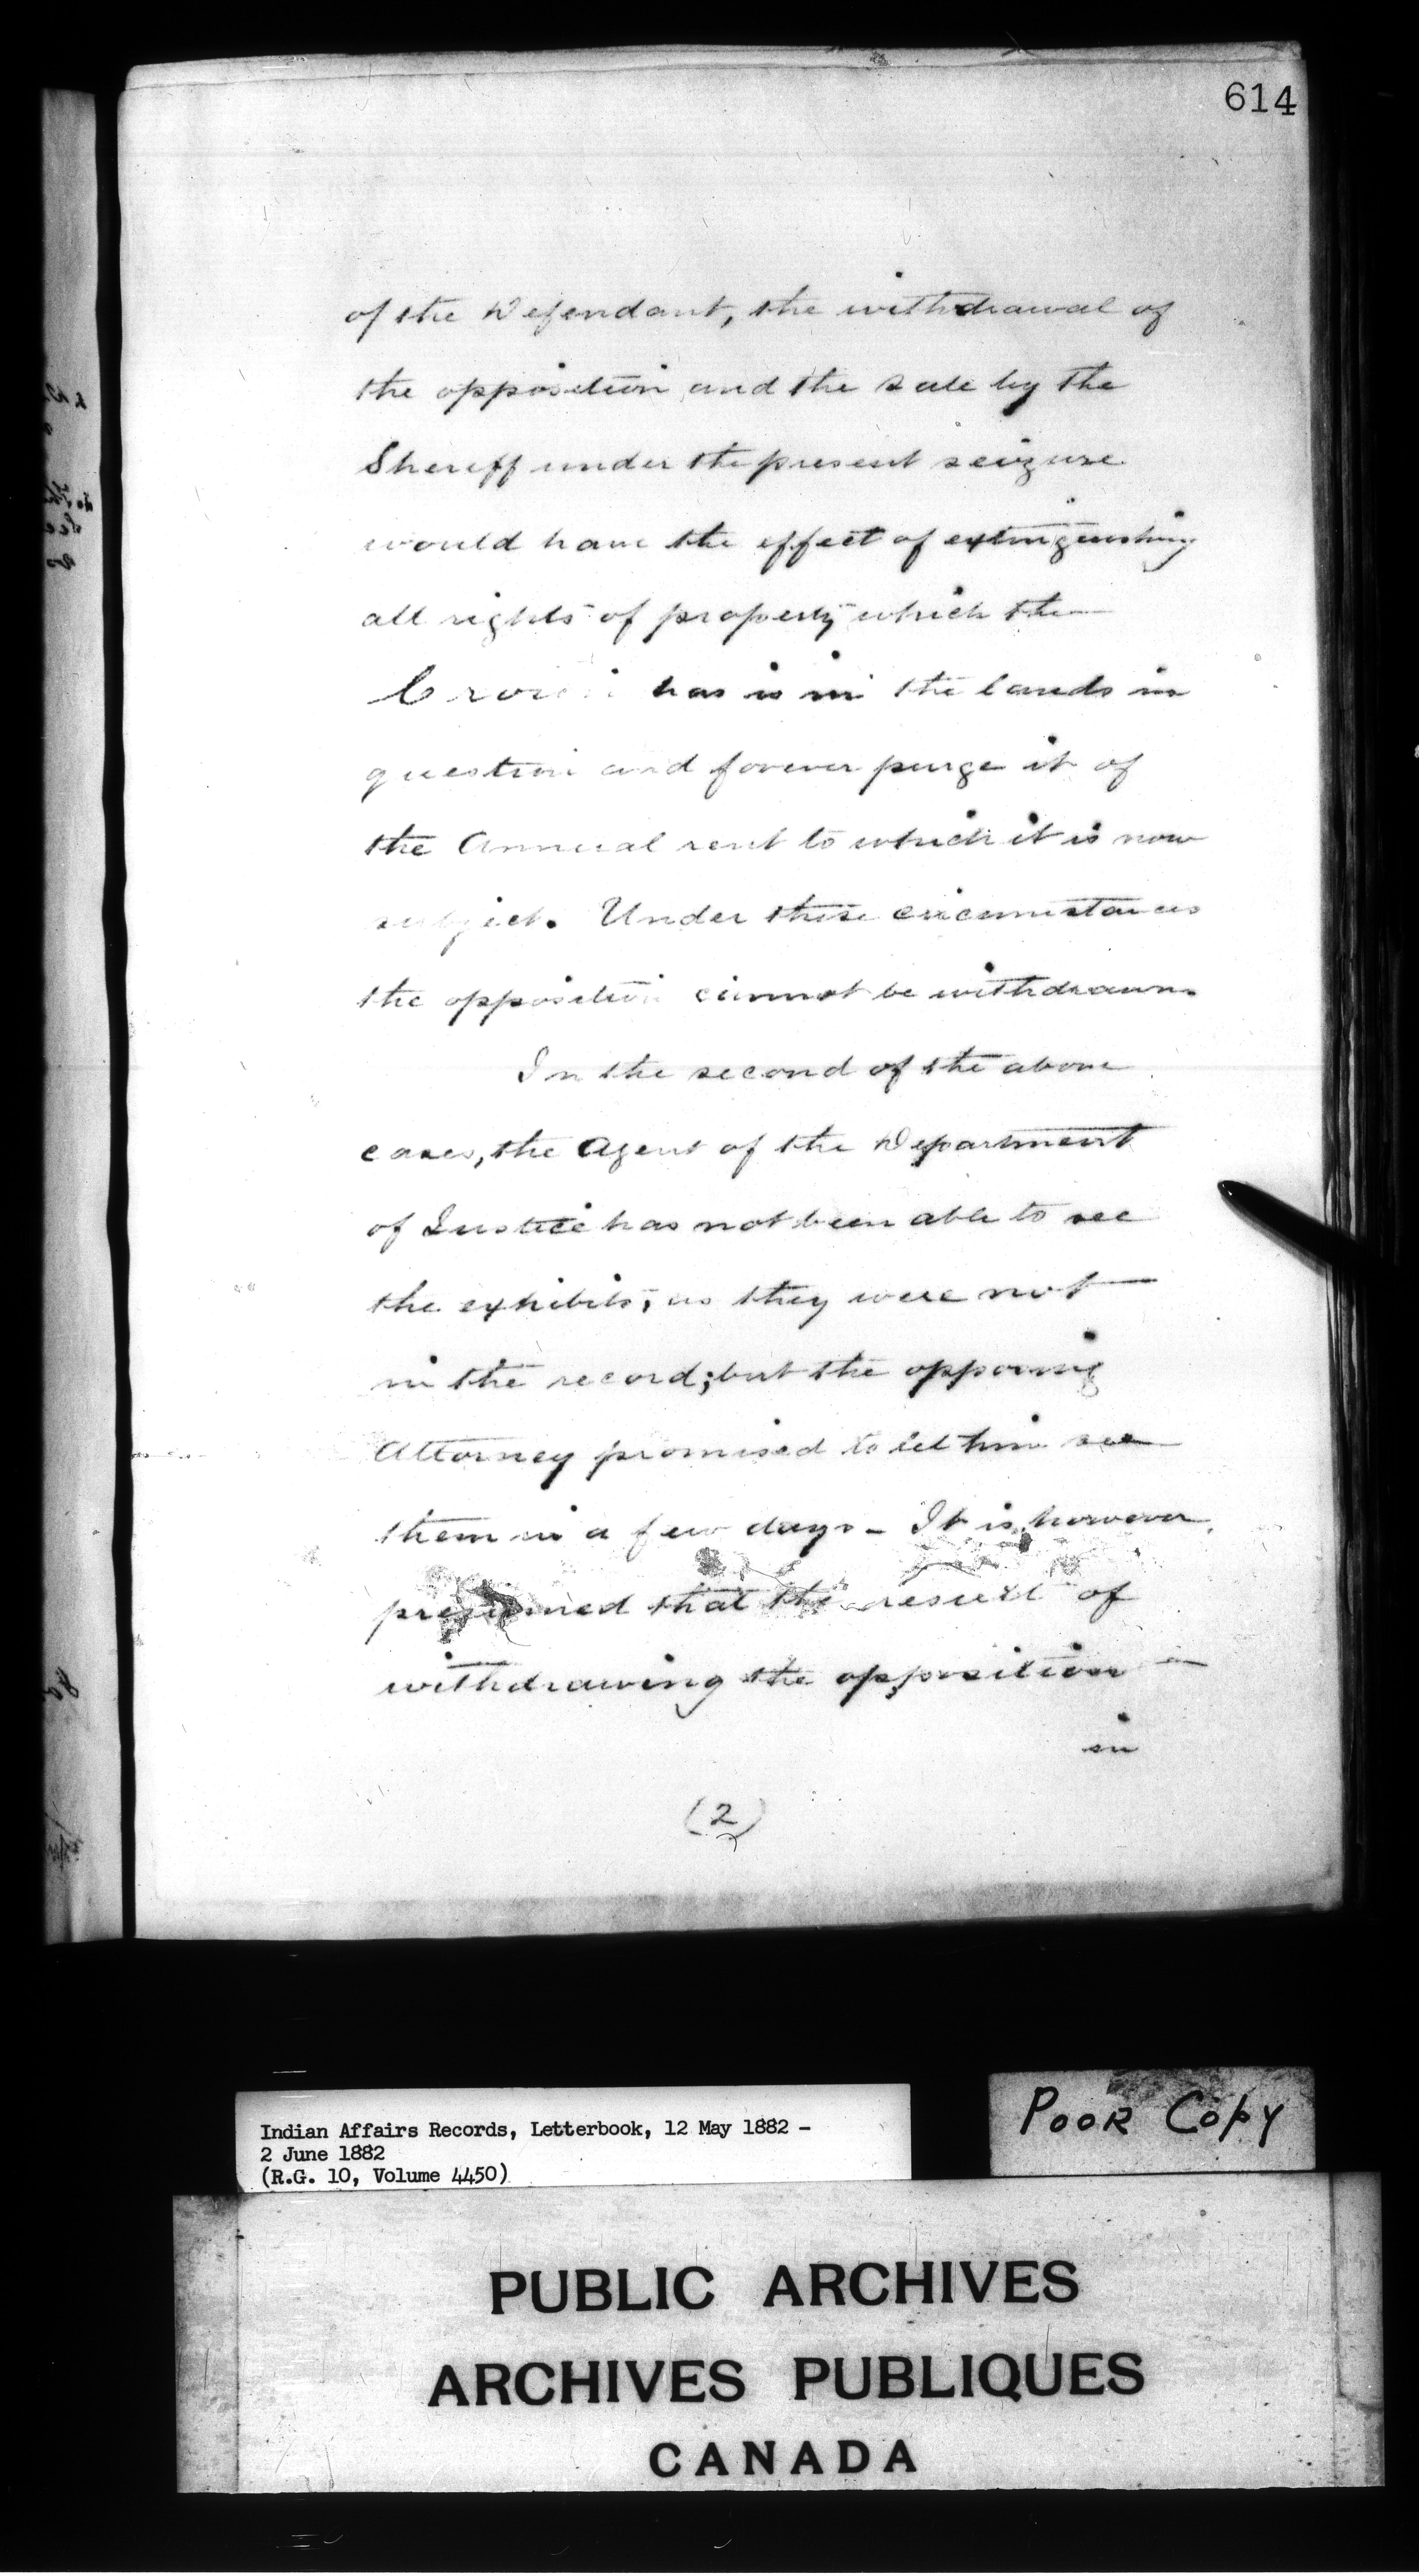 614
of the Defendant, the withdrawal of
the opposition and the sale by the
Sheriff under the present seizure
would have the effect of extinguishing
all rights of property which the
Crown has is in the lands in
question and forever purge it of
the Annual rent to which it is now
subject. Under these circumstances
the opposition cannot be withdrawn.
In the second of the above
cases, the Agent of the Department
of Justice has not been able to see
the exhibits, as they were not
in the record; but the opposing
Attorney promised to let him see
them in a few days - It is, however,
presumed that the result of
withdrawing the opposition
in
(2)
Indian Affairs Records, Letterbook, 12 May 1882 -
2 June 1882
(R.G. 10, Volume 4450)
POOR COPY
PUBLIC ARCHIVES
ARCHIVES PUBLIQUES
CANADA